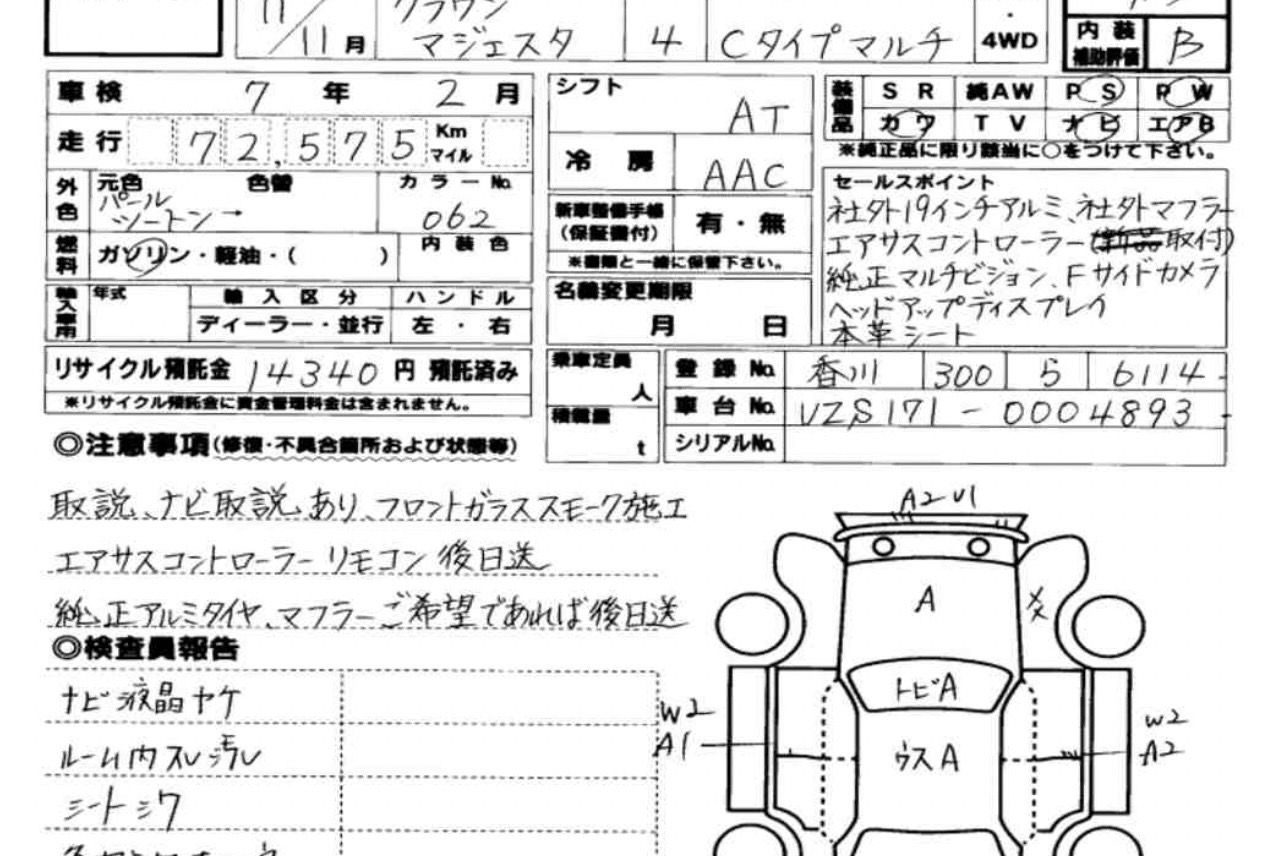 11
クラウン
11月 マジェスタ 4 Cタイプマルチ ・4WD 内装補助評価 B
車検 7年 2月
シフト AT
装備品 SR 純AW PS PW
カワ TV ナビ エアB
※純正品に限り該当に○をつけて下さい。
走行 72,575 Km マイル
冷房 AAC
外色 元色 色替 カラーNo.
パール
ツートン→ 062
新車整備手帳(保証書付) 有・無
※書類と一緒に保管下さい。
セールスポイント
社外19インチアルミ、社外マフラー
エアサスコントローラー(新品取付)
純正マルチビジョン、Fサイドカメラ
ヘッドアップディスプレイ
本革シート
燃料 ガソリン・軽油・( ) 内装色
輸入車用 年式 輸入区分 ハンドル
ディーラー・並行 左・右
名義変更期限
月 日
リサイクル預託金 14340円 預託済み
※リサイクル預託金に資金管理料金は含まれません。
乗車定員 人
積載量 t
登録No. 香川 300 ら 6114
車台No. UZS171-0004893
シリアルNo.
◎注意事項(修復・不具合箇所および状態等)
取説、ナビ取説、あり、フロントガラススモーク施工
エアサスコントローラーリモコン後日送
純正アルミタイヤ、マフラーご希望であれば後日送
◎検査員報告
ナビ液晶ヤケ
ルーム内スレ汚レ
シートシワ
A2 U1
A
トビA
W2
A1
ウスA
W2
A2